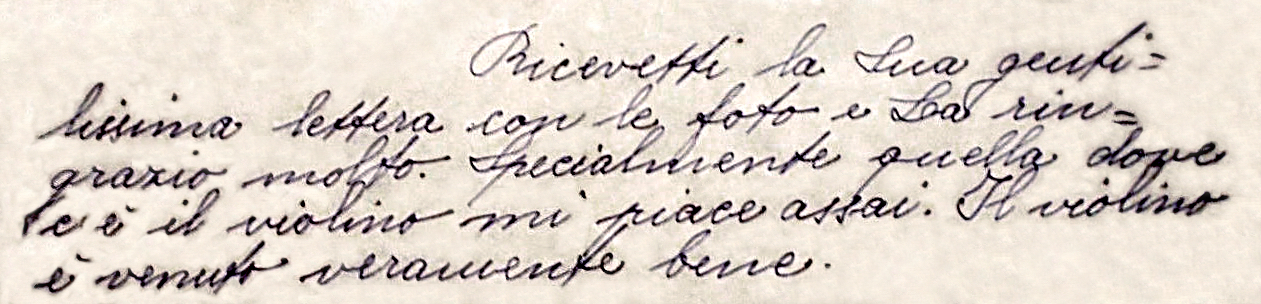 Ricevetti la Sua genti=
lissima lettera con le foto e La rin=
grazio molto. Specialmente quella dove
c'è il violino mi piace assai. Il violino
è venuto veramente bene.